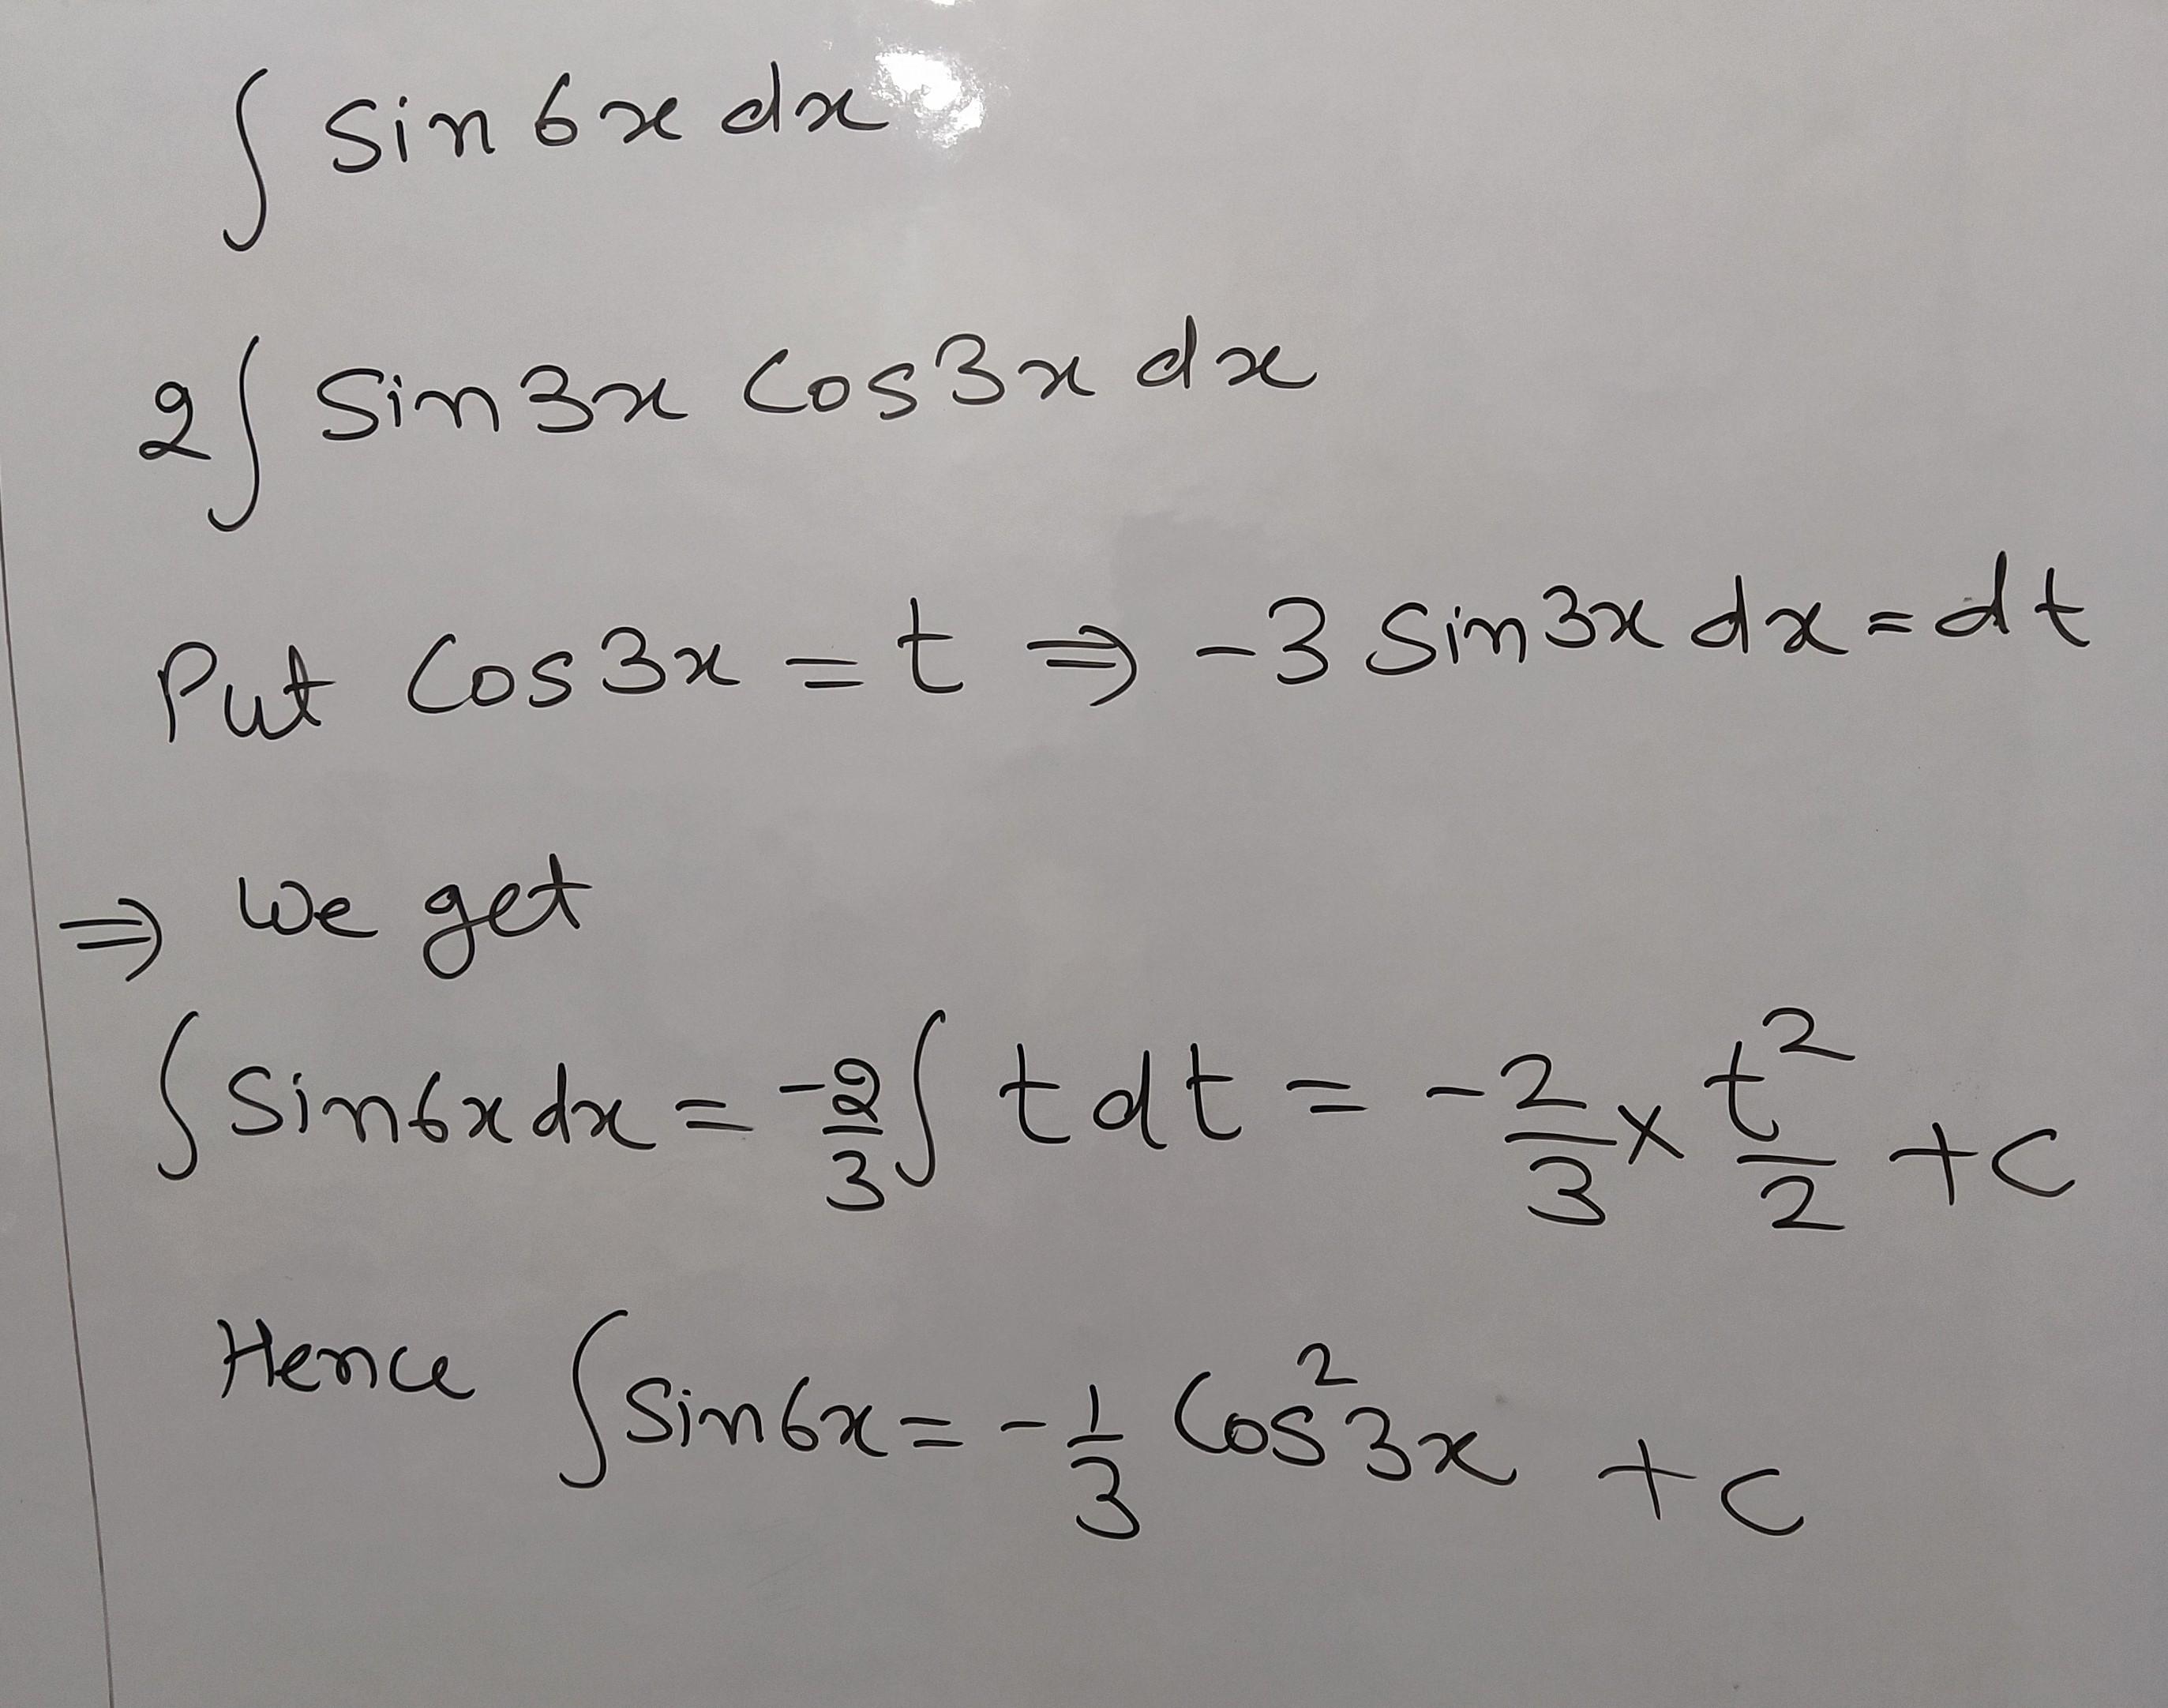 ∫ sin 6x dx
2∫ sin 3x cos 3x dx
Put cos 3x = t ⇒ -3 sin 3x dx = dt
⇒ we get
∫ sin 6x dx = -2/3 ∫ t dt = -2/3 × t²/2 + c
Hence ∫ sin 6x = -1/3 cos² 3x + c